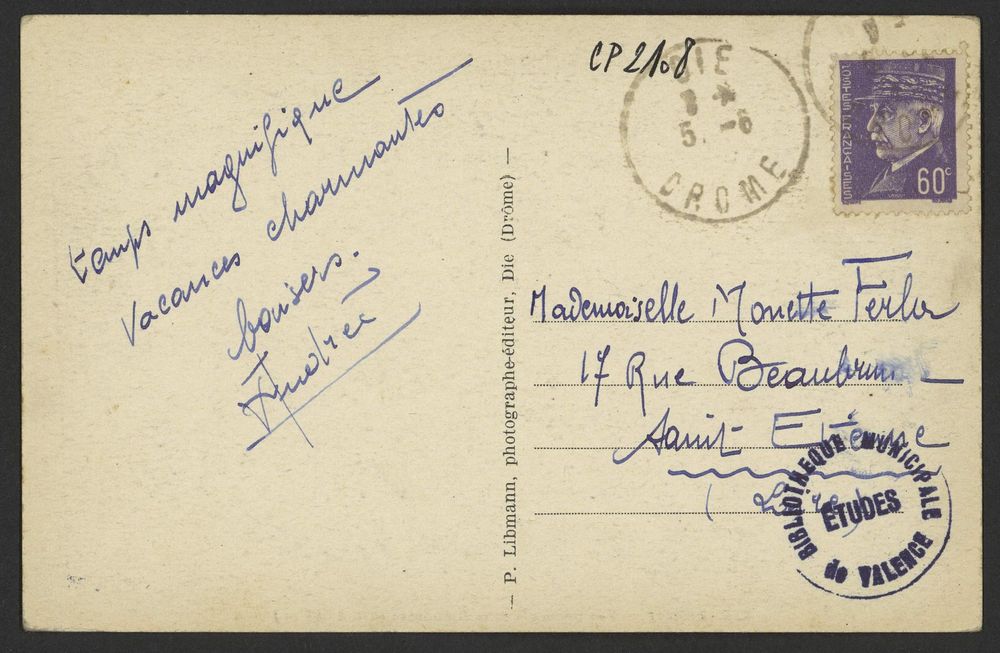 temps magnifique
vacances charmantes
baisers.
Andrée
— P. Libmann, photographe-éditeur, Die (Drôme) —
CP 2108
DIE
DROME
POSTES FRANÇAISES
60c
Mademoiselle Monette Ferlor
17 Rue Beaubrun
Saint Etienne
(Loire)
BIBLIOTHEQUE MUNICIPALE
ETUDES
de VALENCE